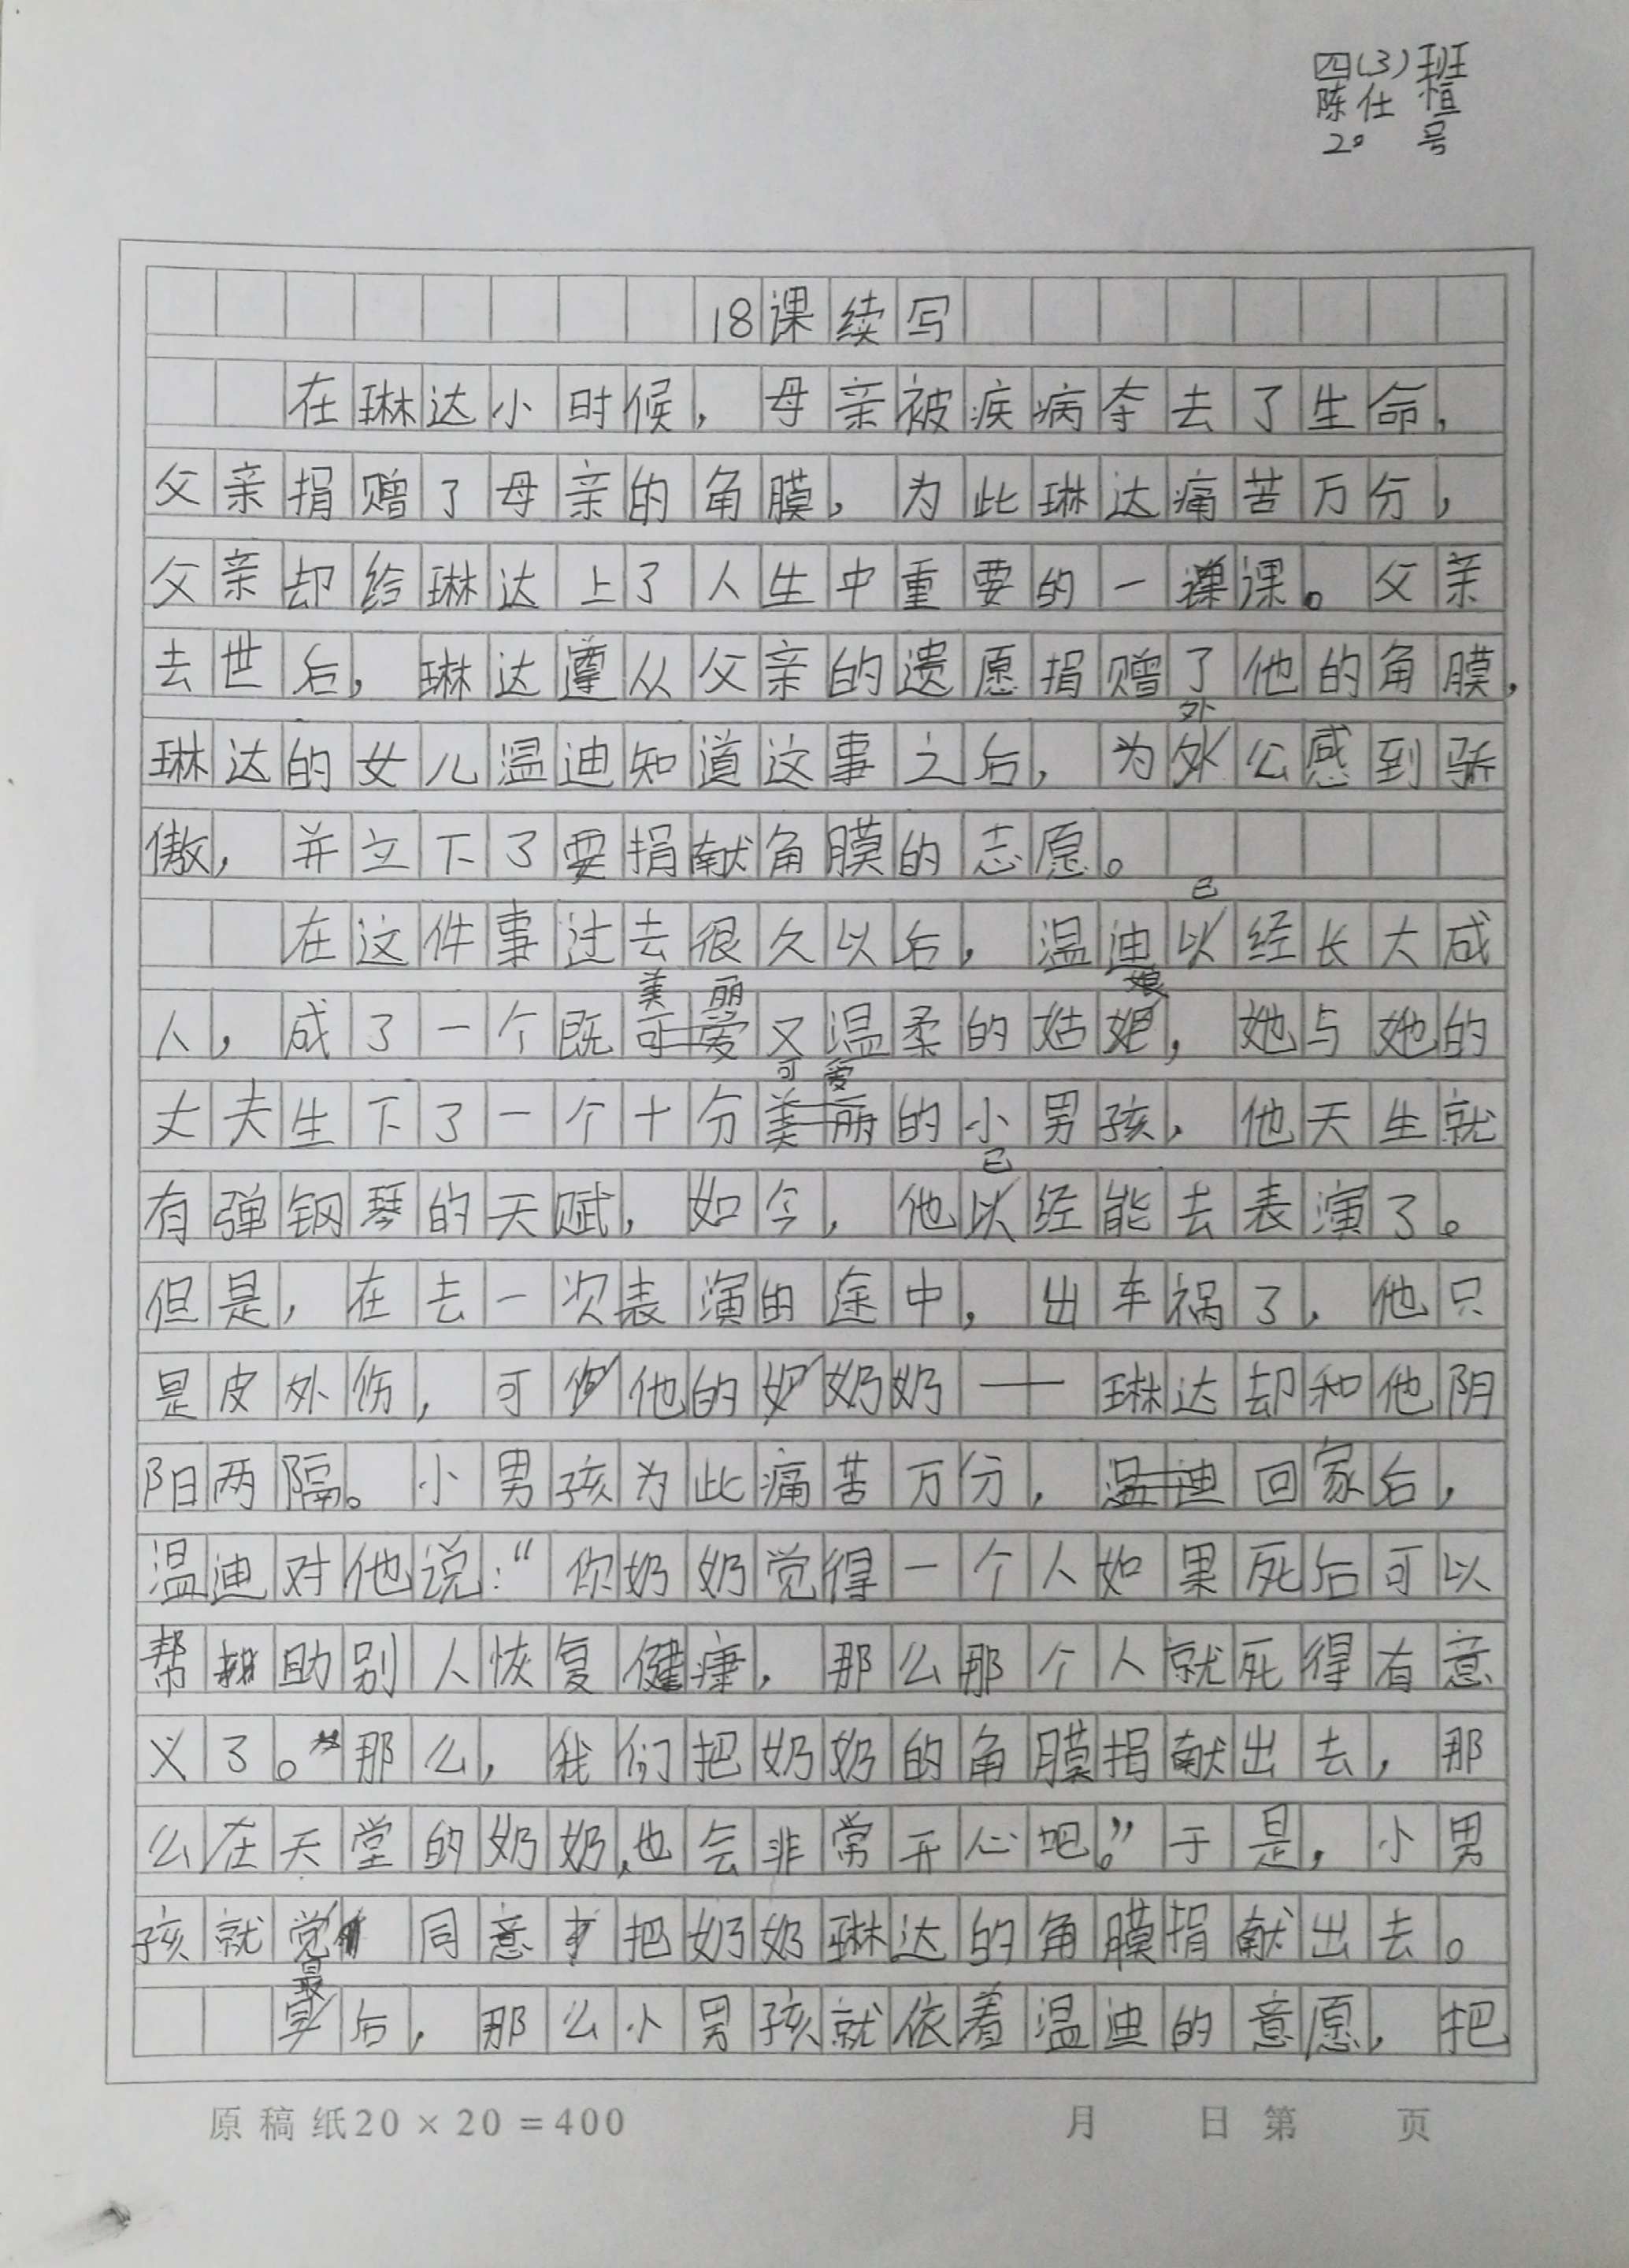 四(3)班
陈仕恒
20号
18课续写
在琳达小时候，母亲被疾病夺去了生命，
父亲捐赠了母亲的角膜，为此琳达痛苦万分，
父亲却给琳达上了人生中重要的一课。父亲
去世后，琳达遵从父亲的遗愿捐赠了他的角膜，
琳达的女儿温迪知道这事之后，为外公感到骄
傲，并立下了要捐献角膜的志愿。
在这件事过去很久以后，温迪已经长大成
人，成了一个既美丽又温柔的姑娘，她与她的
丈夫生下了一个十分可爱的小男孩，他天生就
有弹钢琴的天赋，如今，他已经能去表演了。
但是，在去一次表演的途中，出车祸了，他只
是皮外伤，可他的奶奶——琳达却和他阴
阳两隔。小男孩为此痛苦万分，回家后，
温迪对他说：“你奶奶觉得一个人如果死后可以
帮助别人恢复健康，那么那个人就死得有意
义了。那么，我们把奶奶的角膜捐献出去，那
么在天堂的奶奶，也会非常开心吧。”于是，小男
孩就同意把奶奶琳达的角膜捐献出去。
最后，那么小男孩就依着温迪的意愿，把
原稿纸20×20=400 月 日 第 页